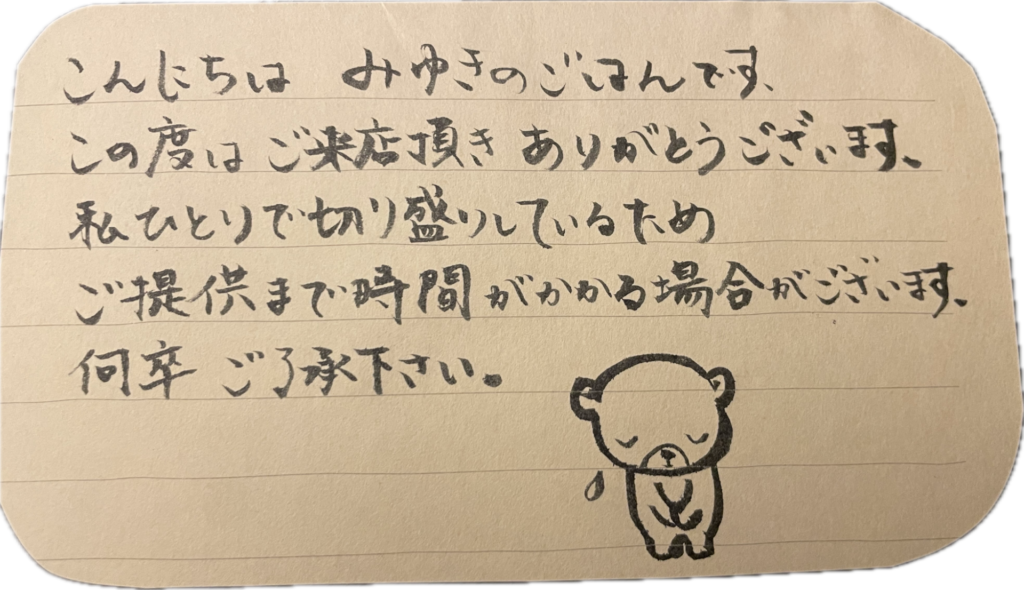 こんにちは みゆきのごはんです、
この度は ご来店頂き ありがとうございます、
私ひとりで切り盛りしているため
ご提供まで時間がかかる場合がございます、
何卒 ご了承下さい。